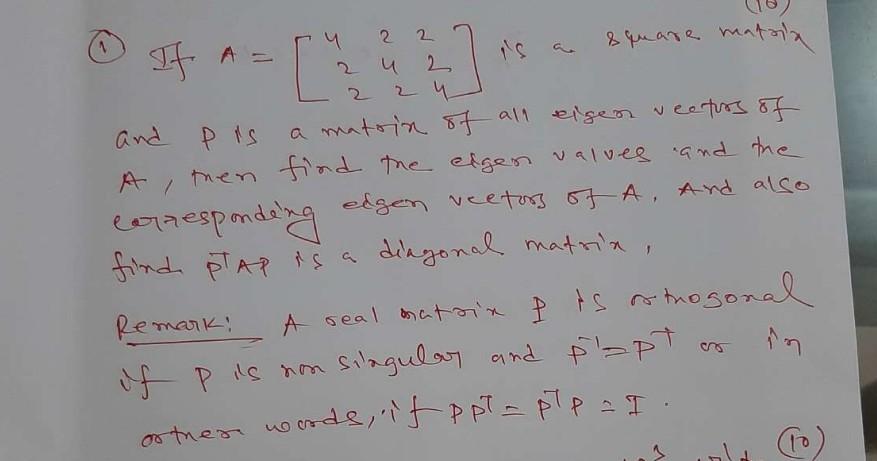 (10)
① If A = [ 4 2 2
2 4 2
2 2 4 ] is a square matrix
and P is a matrix of all eigen vectors of
A, then find the eigen values and the
corresponding eigen vectors of A. And also
find PᵀAP is a diagonal matrix,
Remark: A real matrix P is orthogonal
if P is non singular and P⁻¹=Pᵀ or in
other words, if PPᵀ = PᵀP = I.
(10)